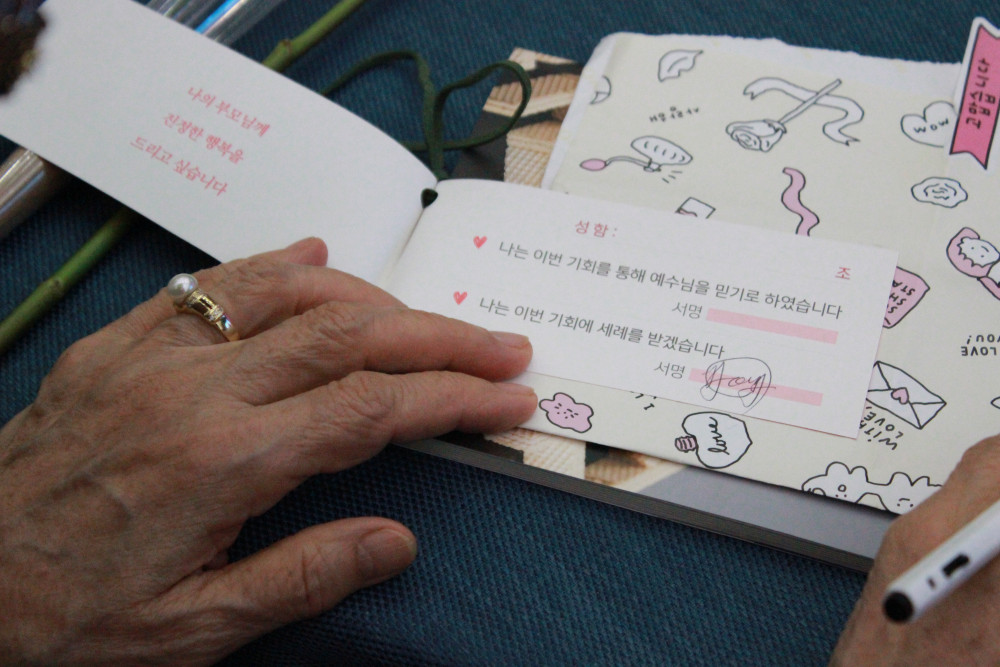 나의 부모님께
진정한 행복을
드리고 싶습니다
성함 :
조
나는 이번 기회를 통해 예수님을 믿기로 하였습니다
서명
나는 이번 기회에 세례를 받겠습니다
서명
Joy
고맙습니다
WOW
LOVE
YOU!
WITH
LOVE,